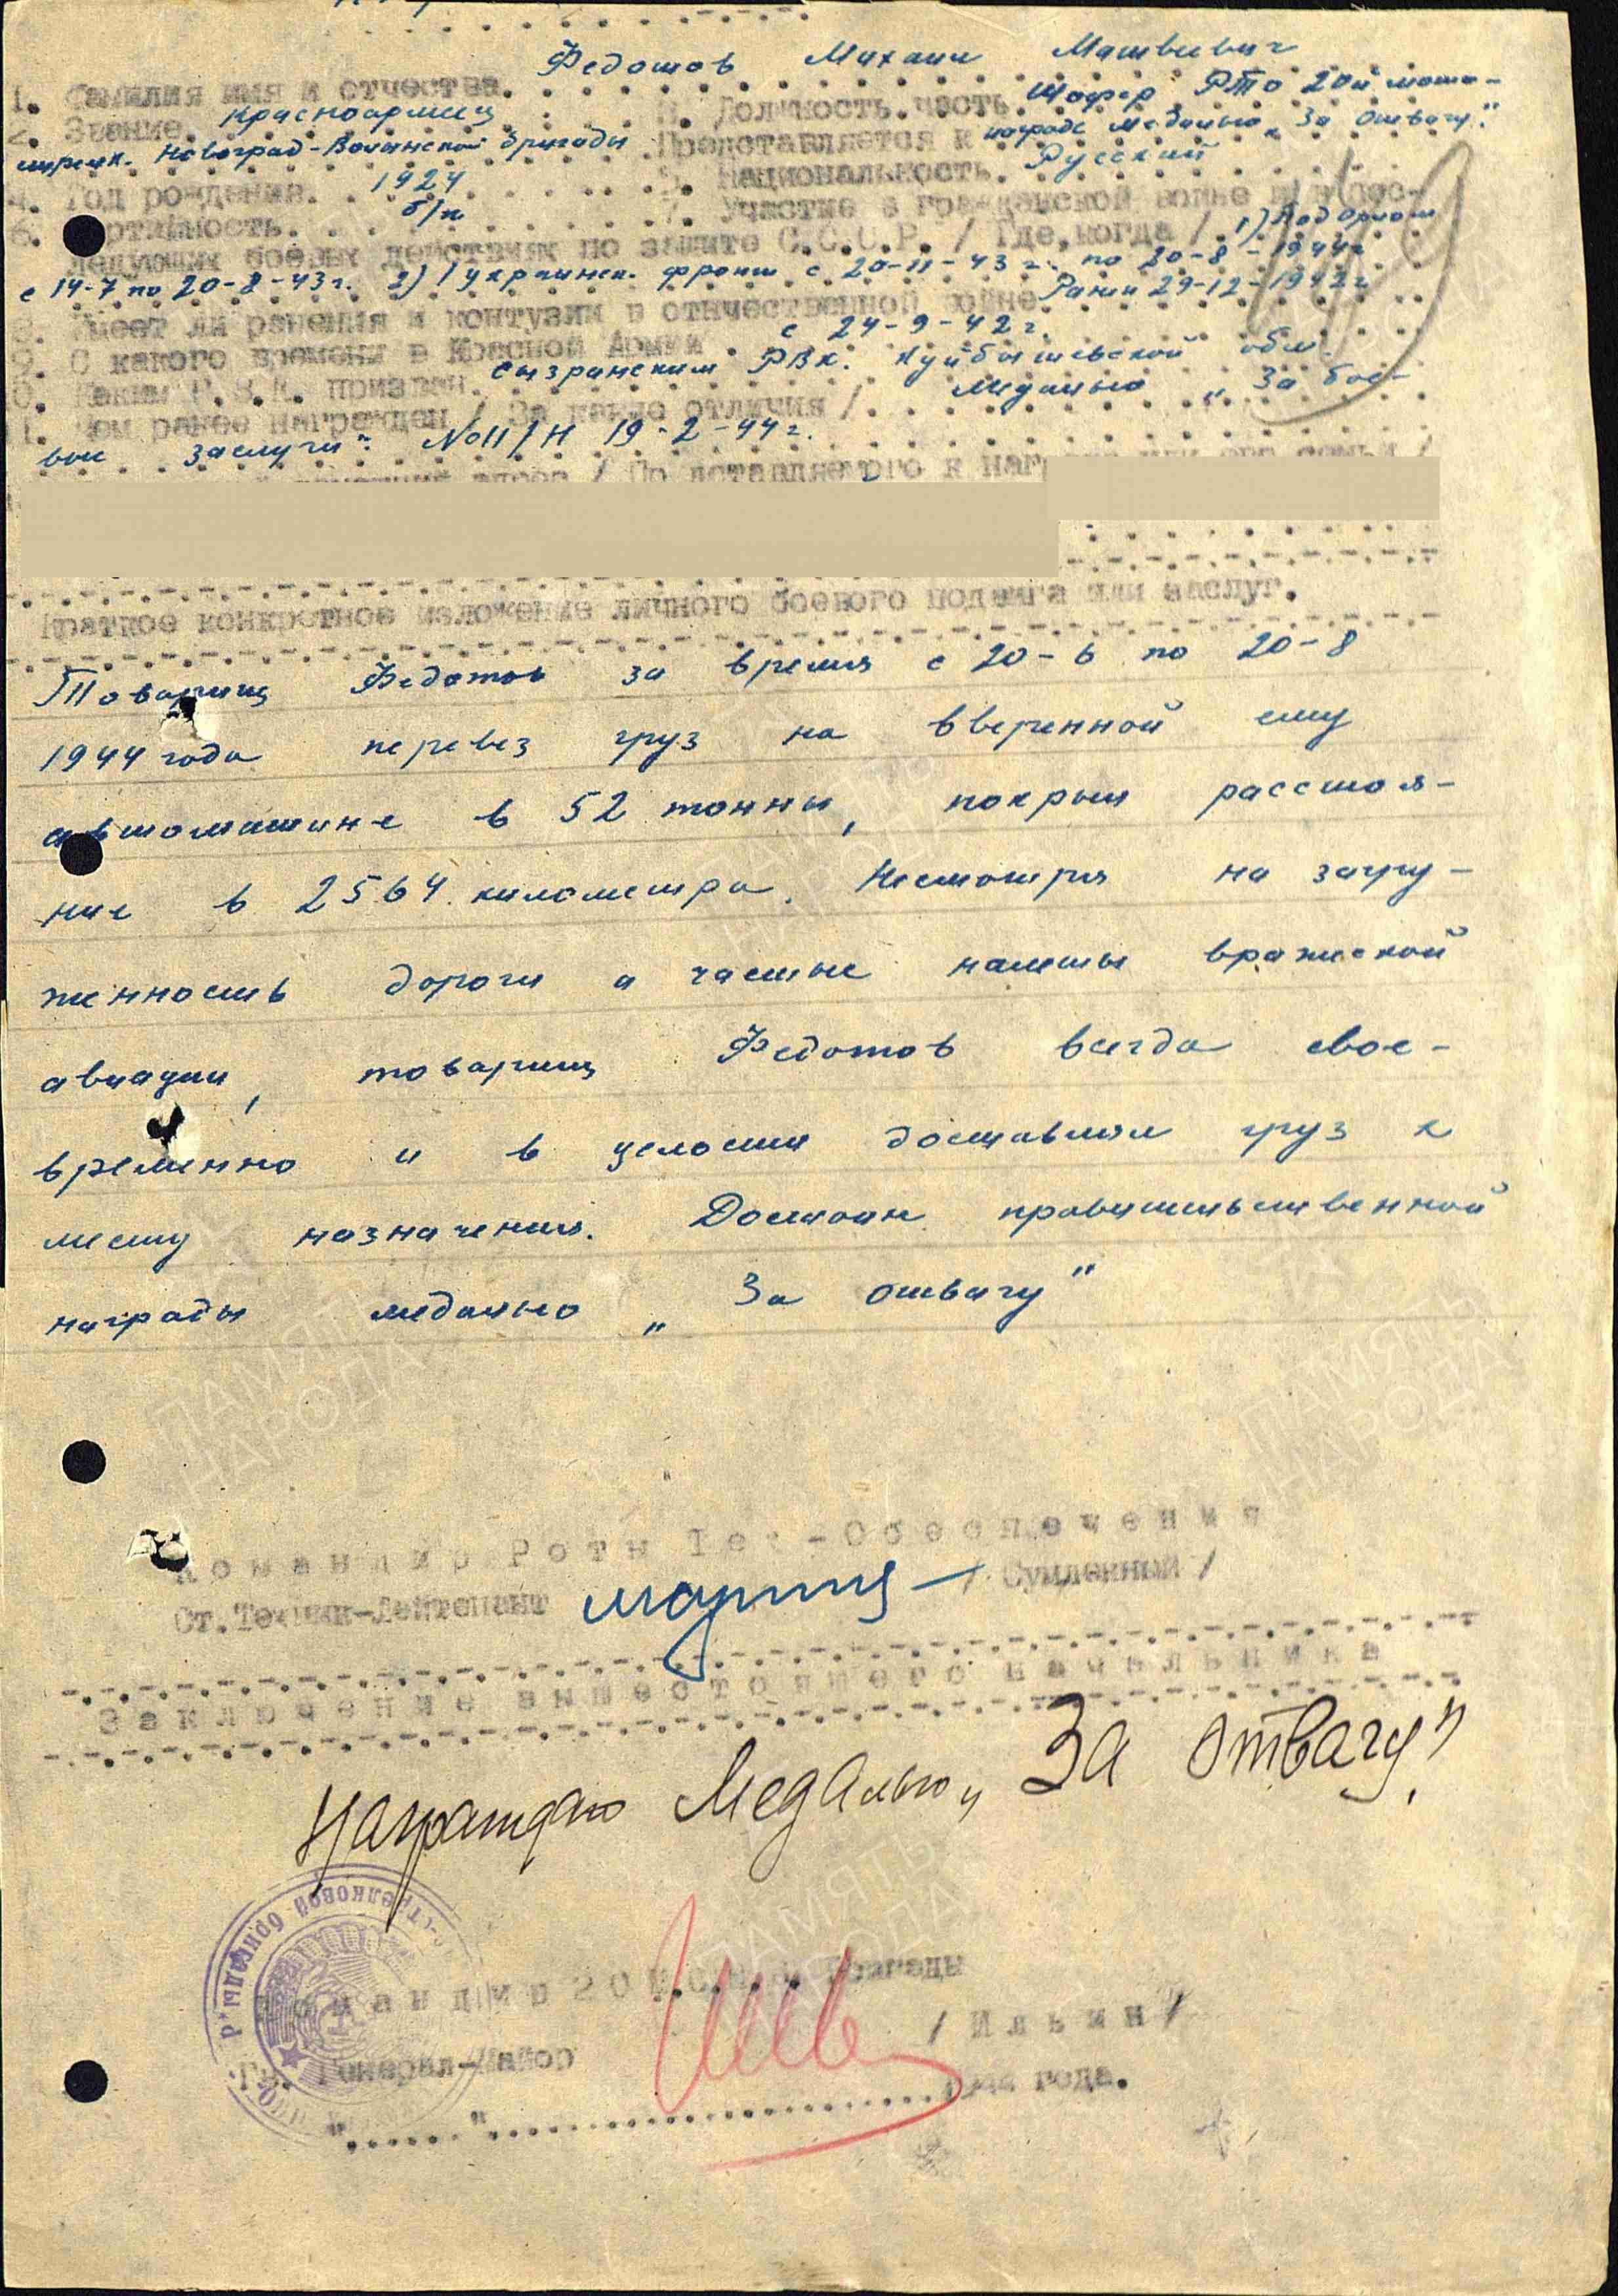 Федотов Михаил Матвеевич
1. Фамилия имя и отчества.
Шофер РТО 20й мото-
2. Звание. Красноармеец 3. Должность, часть.
стрелк. Новоград-Волынской бригады Представляется к награде медалью „За отвагу".
4. Год рождения. 1924 5. Национальность. Русский
6. Партийность. б/п 7. Участие в гражданской войне и пос-
ледующих боевых действиях по защите С.С.С.Р. / Где, когда / 1) Под Орлом
с 14-7 по 20-8-43г. 2) 1 украинск. фронт с 20-11-43г. по 20-8-1944г.
8. Имеет ли ранения и контузии в отечественной войне. Ранен 29-12-1942г.
9. С какого времени в Красной Армии с 24-9-42г.
10. Каким Р.В.К. призван. Сызранским РВК. Куйбышевской обл.
11. Чем ранее награжден / За какие отличия /. медалью „За бое-
вые заслуги". №11/Н 19-2-44г.
адрес / Представляемого к
Краткое конкретное изложение личного боевого подвига или заслуг.
Товарищ Федотов за время с 20-6 по 20-8
1944 года перевез груз на вверенной ему
автомашине в 52 тонны, покрыл расстоя-
ние в 2564 километра. Несмотря на загру-
женность дороги и частые налеты вражеской
авиации, товарищ Федотов всегда свое-
временно и в целости доставлял груз к
месту назначения. Достоин правительственной
награды медалью „За отвагу"
Командир Роты Тех-Обеспечения
Ст.Техник-Лейтенант / Сумленный /
Заключение вышестоящего начальника
Награждаю Медалью „За отвагу".
Командир 20 М.С. Бригады
Гв. Генерал-Майор / Ильин /
"......"........................ 1944 года.
стрелковой бригады
ПАМЯТЬ
НАРОДА